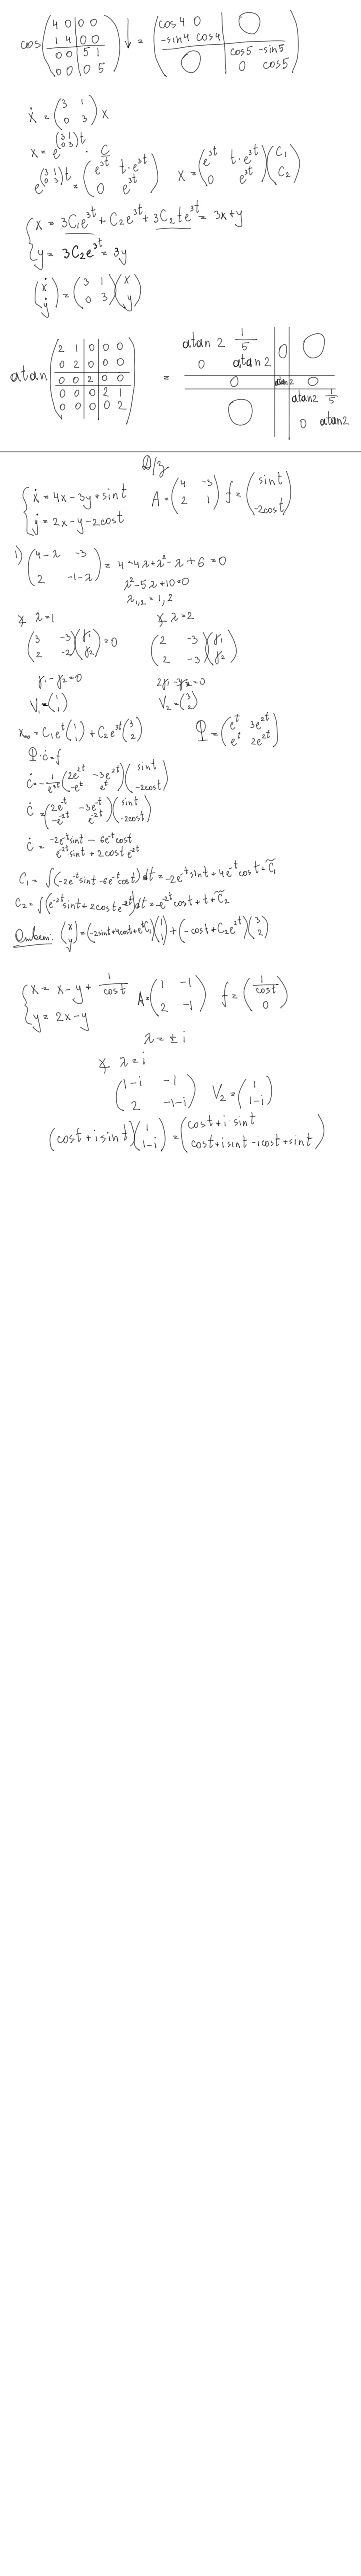 cos(4 0 0 0 / 1 4 0 0 / 0 0 5 1 / 0 0 0 5)↓ = (cos4 0 / -sin4 cos4 | 0 / 0 | cos5 -sin5 / 0 cos5)
ẋ = (3 1 / 0 3) x
x = e^{(3 1 / 0 3)t} · C
e^{(3 1 / 0 3)t} = (e^{3t} t·e^{3t} / 0 e^{3t})   x = (e^{3t} t·e^{3t} / 0 e^{3t})(C₁ / C₂)
{ x = 3C₁e^{3t} + C₂e^{3t} + 3C₂te^{3t} = 3x+y
y = 3C₂e^{3t} = 3y
(ẋ / ẏ) = (3 1 / 0 3)(x / y)
atan(2 1 0 0 0 / 0 2 0 0 0 / 0 0 2 0 0 / 0 0 0 2 1 / 0 0 0 0 2) = (atan 2 1/5 / 0 atan2 | 0 | 0 / 0 | atan2 | 0 / 0 | atan2 1/5 / 0 atan2)
Д/з
{ ẋ = 4x-3y+sint   A = (4 -3 / 2 1)   f = (sint / -2cost)
ẏ = 2x-y-2cost
1) (4-λ -3 / 2 -1-λ) = 4-4λ+λ²-λ+6=0
λ²-5λ+10=0
λ₁,₂ = 1, 2
λ=1   λ=2
(3 -3 / 2 -2)(γ₁ / γ₂)=0   (2 -3 / 2 -3)(γ₁ / γ₂)
γ₁-γ₂=0   2γ₁-3γ₂=0
V₁=(1 / 1)   V₂=(3 / 2)
= C₁e^t(1 / 1) + C₂e^{3t}(3 / 2)   Φ = (e^t 3e^{2t} / e^t 2e^{2t})
Φ·ċ=f
ċ = -1/e^{3t}(2e^{2t} -3e^{2t} / -e^t e^t)(sint / -2cost)
ċ = (2e^{-t} -3e^{-t} / -e^{-2t} e^{-2t})(sint / -2cost)
ċ = -2e^{-t}sint - 6e^{-t}cost / e^{-2t}sint + 2cost e^{-2t}
C₁ = ∫(-2e^{-t}sint-6e^{-t}cost)dt = -2e^{-t}sint+4e^{-t}cost+C̃₁
C₂ = ∫(e^{-2t}sint+2coste^{-2t})dt = -e^{-2t}cost+t+C̃₂
Ответ: (x / y) = (-2sint+4cost+e^tC₁)(1 / 1) + (-cost+C₂e^{2t})(3 / 2)
{ ẋ = x-y+ 1/cost   A=(1 -1 / 2 -1)   f=(1/cost / 0)
y = 2x-y
λ = ± i
λ = i
(1-i -1 / 2 -1-i)   V₂=(1 / 1-i)
(cost+isint)(1 / 1-i) = (cost+i·sint / cost+isint-icost+sint)